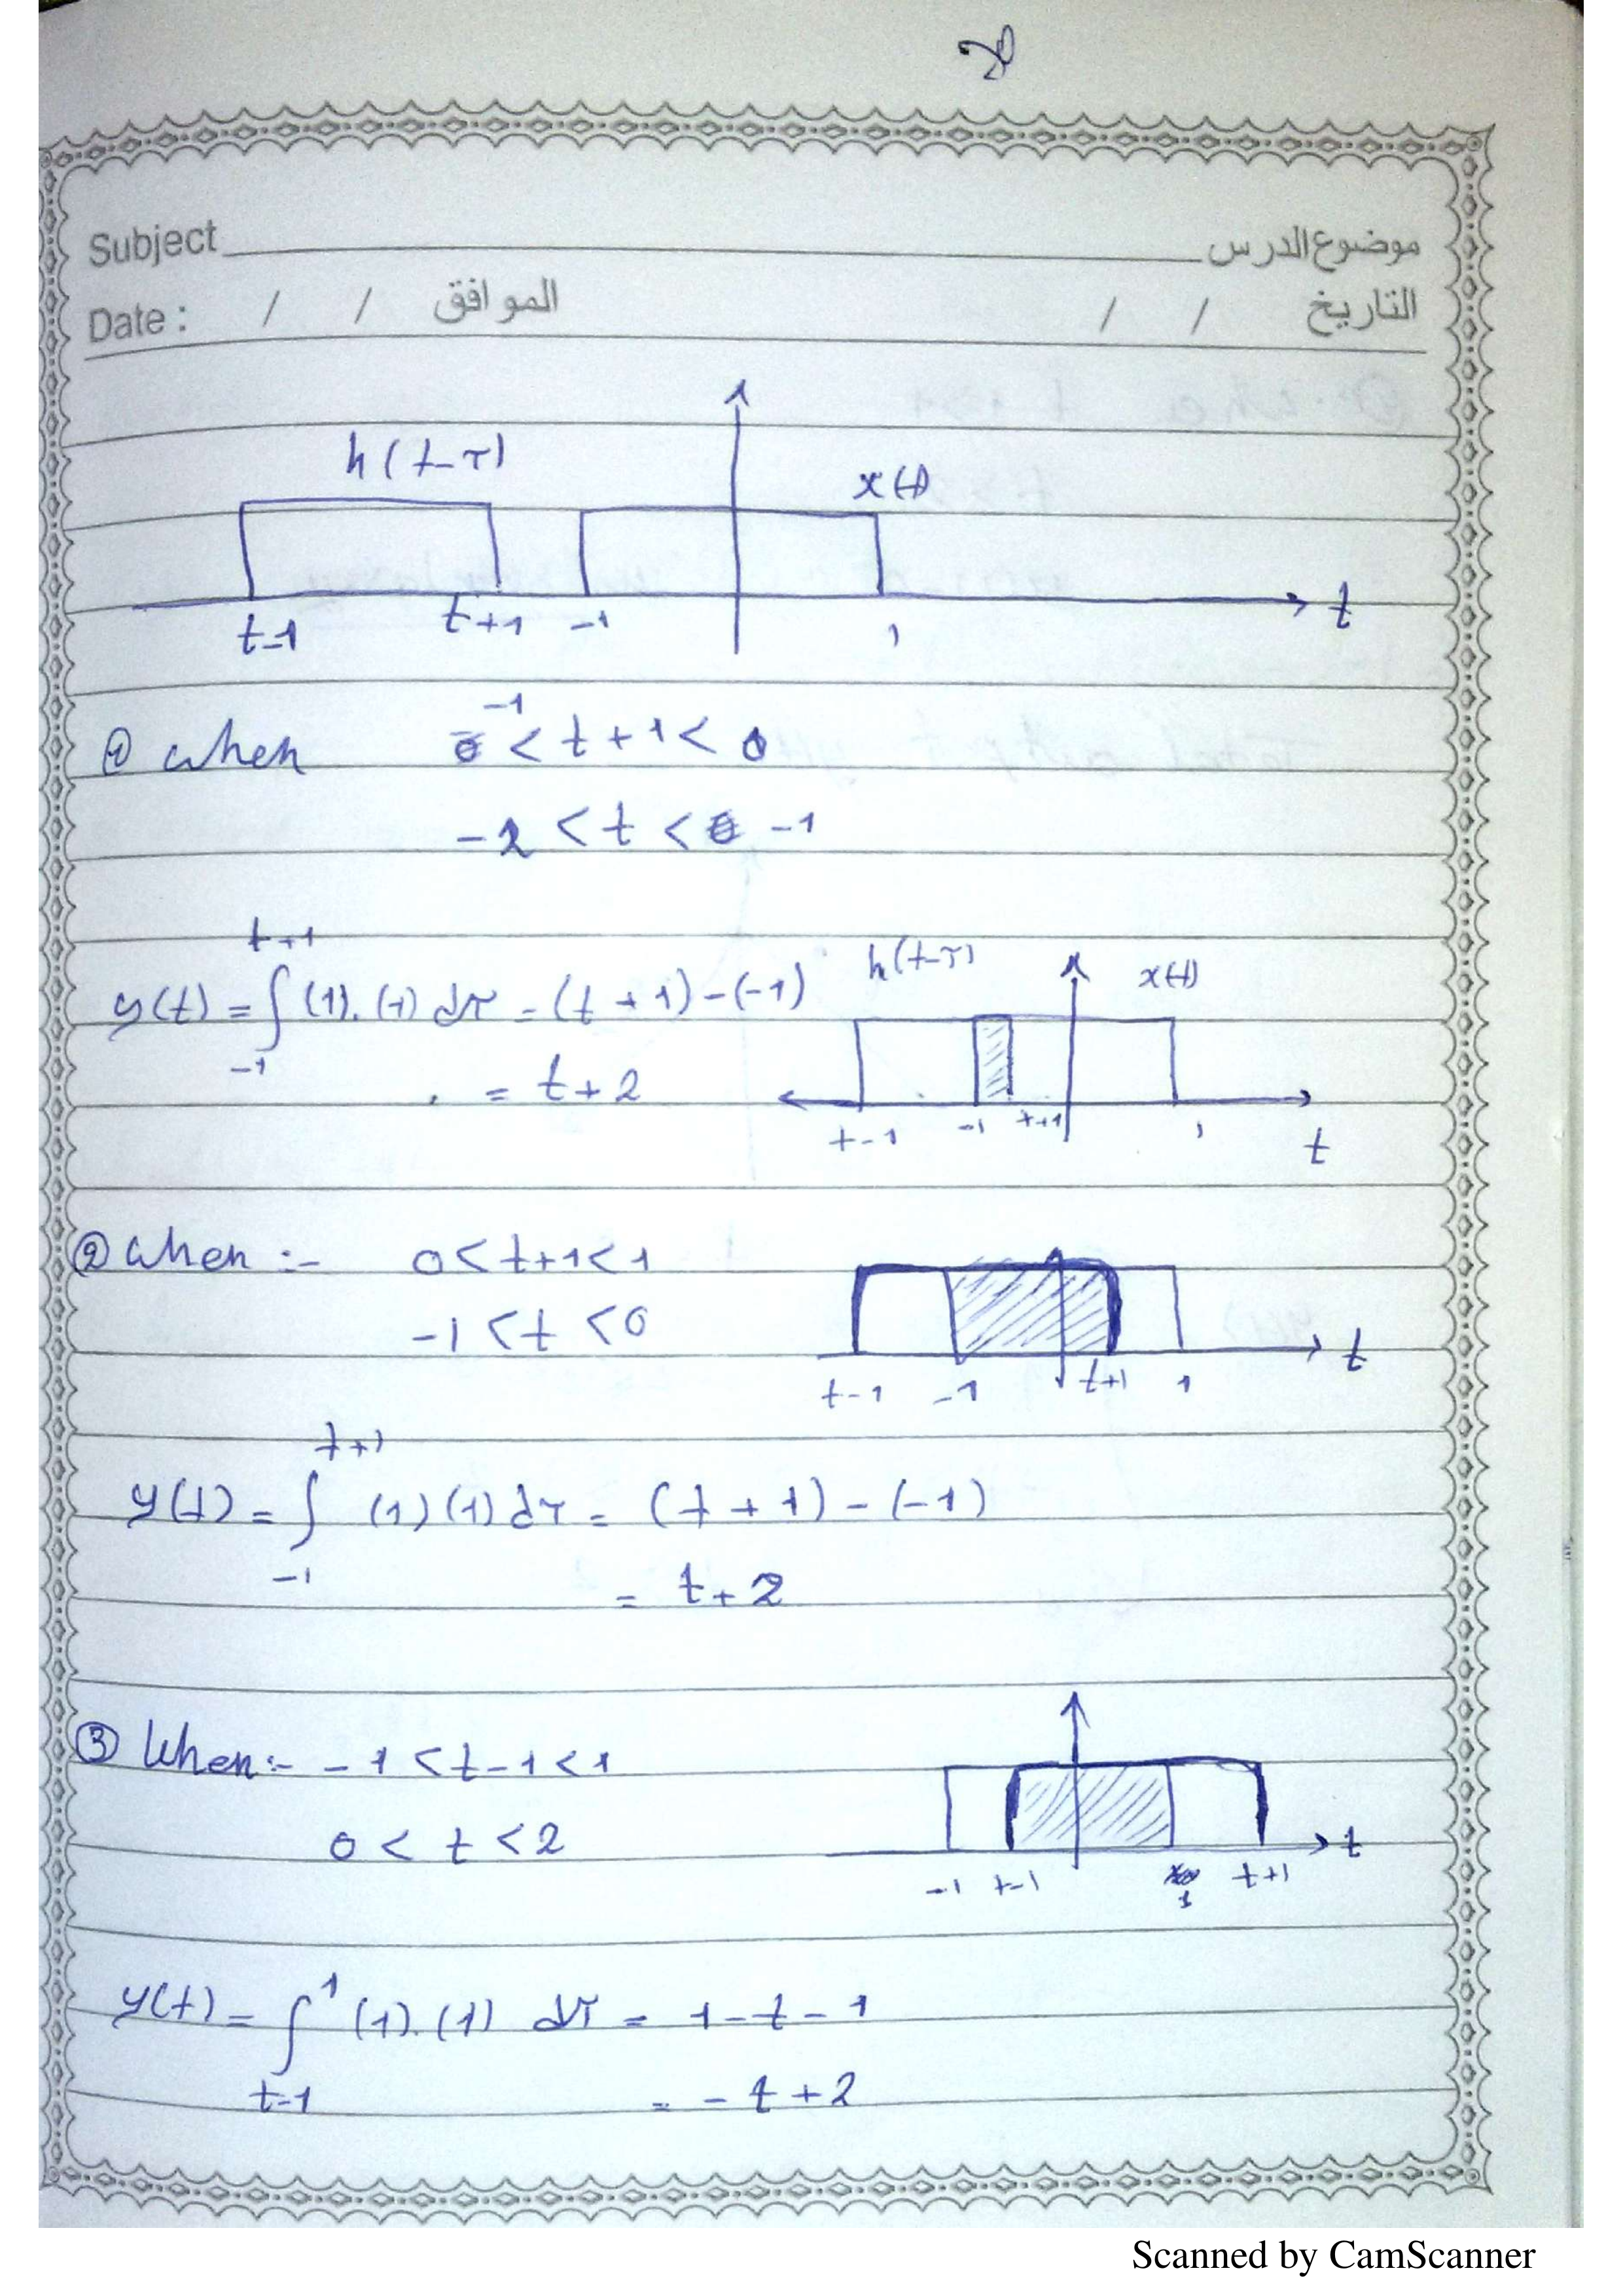 Subject موضوع الدرس
Date : / / الموافق / / التاريخ
h(t-τ)
x(t)
t-1 t+1 -1 1 t
① when -1 < t+1 < 0
-2 < t < -1
y(t) = ∫_{-1}^{t+1} (1).(1) dτ = (t+1)-(-1)
= t+2
h(t-τ) x(t)
t-1 -1 t+1 1 t
② when :- 0 < t+1 < 1
-1 < t < 0
t-1 -1 t+1 1 t
y(t) = ∫_{-1}^{t+1} (1)(1) dτ = (t+1)-(-1)
= t+2
③ When:- -1 < t-1 < 1
0 < t < 2
-1 t-1 1 t+1 t
y(t) = ∫_{t-1}^{1} (1).(1) dτ = 1-t-1
= -t+2
Scanned by CamScanner